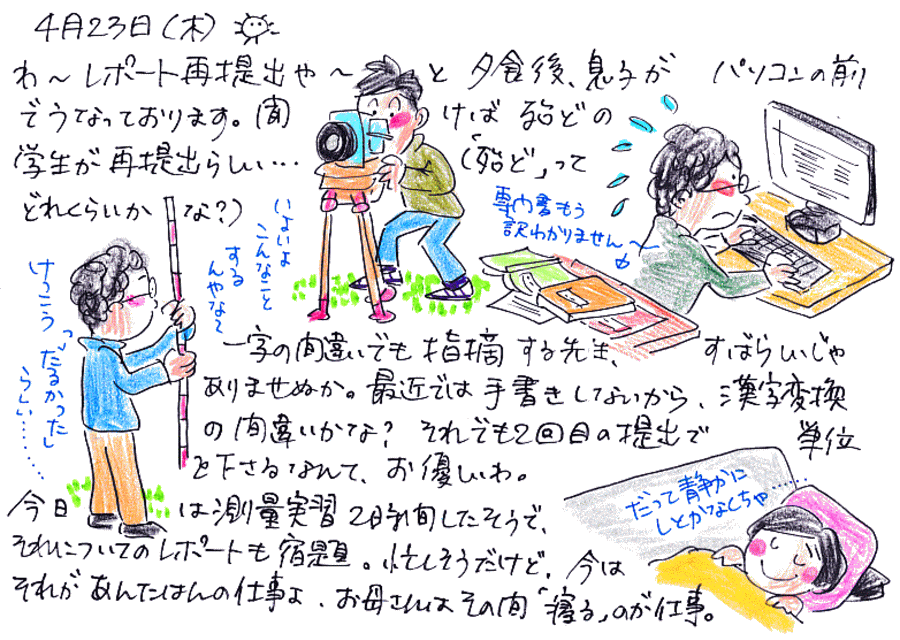 4月23日(木)
わ〜レポート再提出や〜 と 夕食後、息子が パソコンの前
でうなっております。聞 けば 殆どの
学生が再提出らしい… (「殆ど」って
どれくらいか な?)
専門書もう
訳わかりません〜
いよいよ
こんなこと
する
んやなぁ
けっこう
つ
だるかったし
らしい……
一字の間違いでも指摘する先生、 すばらしいじゃ
ありませぬか。最近では手書きしないから、漢字変換
の間違いかな? それでも2回目の提出で 単位
を下さるなんて、お優しいわ。
だって静かに
しとかなくちゃ……
今日 は測量実習2時間したそうで、
それについてのレポートも宿題。忙しそうだけど、今は
それがあんたはんの仕事よ、お母さんはその間「寝る」のが仕事。